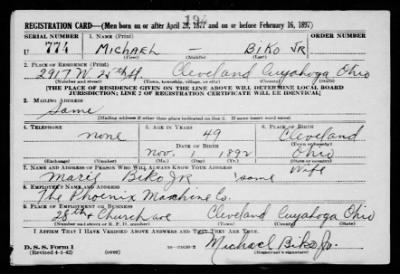 194
REGISTRATION CARD—(Men born on or after April 28, 1877 and on or before February 16, 1897)
SERIAL NUMBER 1. NAME (Print)
U 774 MICHAEL — BIKO JR
(First) (Middle) (Last)
2. PLACE OF RESIDENCE (Print)
2917 W 25th St Cleveland Cuyahoga Ohio
(Number and street) (Town, township, village, or city) (County) (State)
[THE PLACE OF RESIDENCE GIVEN ON THE LINE ABOVE WILL DETERMINE LOCAL BOARD
JURISDICTION; LINE 2 OF REGISTRATION CERTIFICATE WILL BE IDENTICAL]
3. MAILING ADDRESS
Same
(Mailing address if other than place indicated on line 2. If same insert word same)
4. TELEPHONE 5. AGE IN YEARS 6. PLACE OF BIRTH
none 49 Cleveland
DATE OF BIRTH (Town or county)
Nov. 1 1892 Ohio
(Exchange) (Number) (Mo.) (Day) (Yr.) (State or country)
7. NAME AND ADDRESS OF PERSON WHO WILL ALWAYS KNOW YOUR ADDRESS Wife
Marie Biko Jr same
8. EMPLOYER'S NAME AND ADDRESS
The Phoenix Machine Co.
9. PLACE OF EMPLOYMENT OR BUSINESS
28th & Church ave Cleveland Cuyahoga Ohio
(Number and street or R. F. D. number) (Town) (County) (State)
I AFFIRM THAT I HAVE VERIFIED ABOVE ANSWERS AND THAT THEY ARE TRUE.
D. S. S. Form 1
(Revised 4-1-42) Michael Biko Jr.